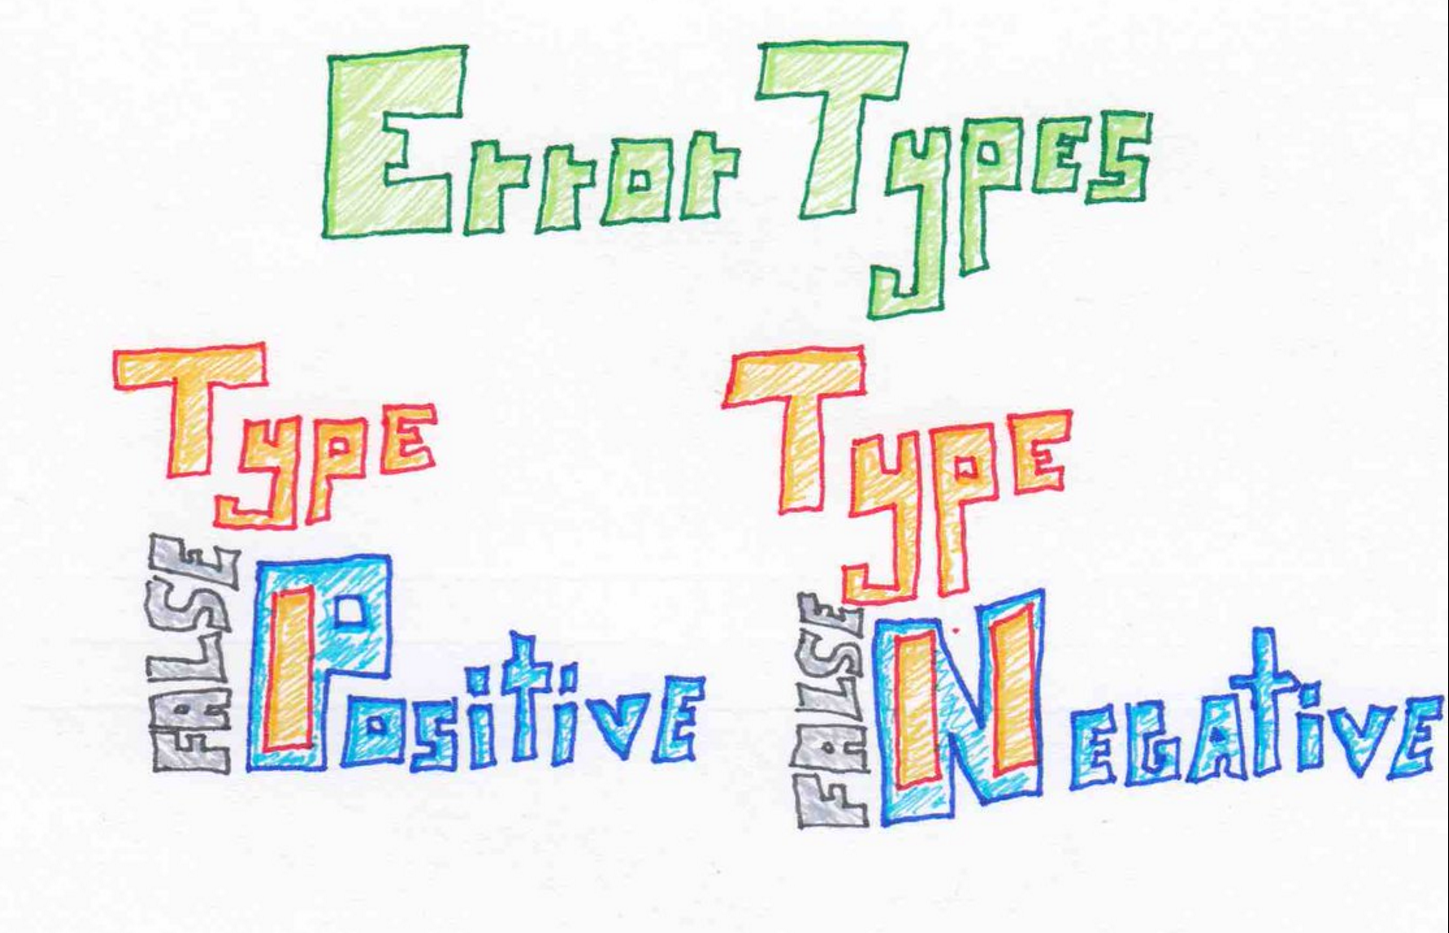 Error Types
Type I
FALSE Positive
Type II
FALSE NEGATIVE